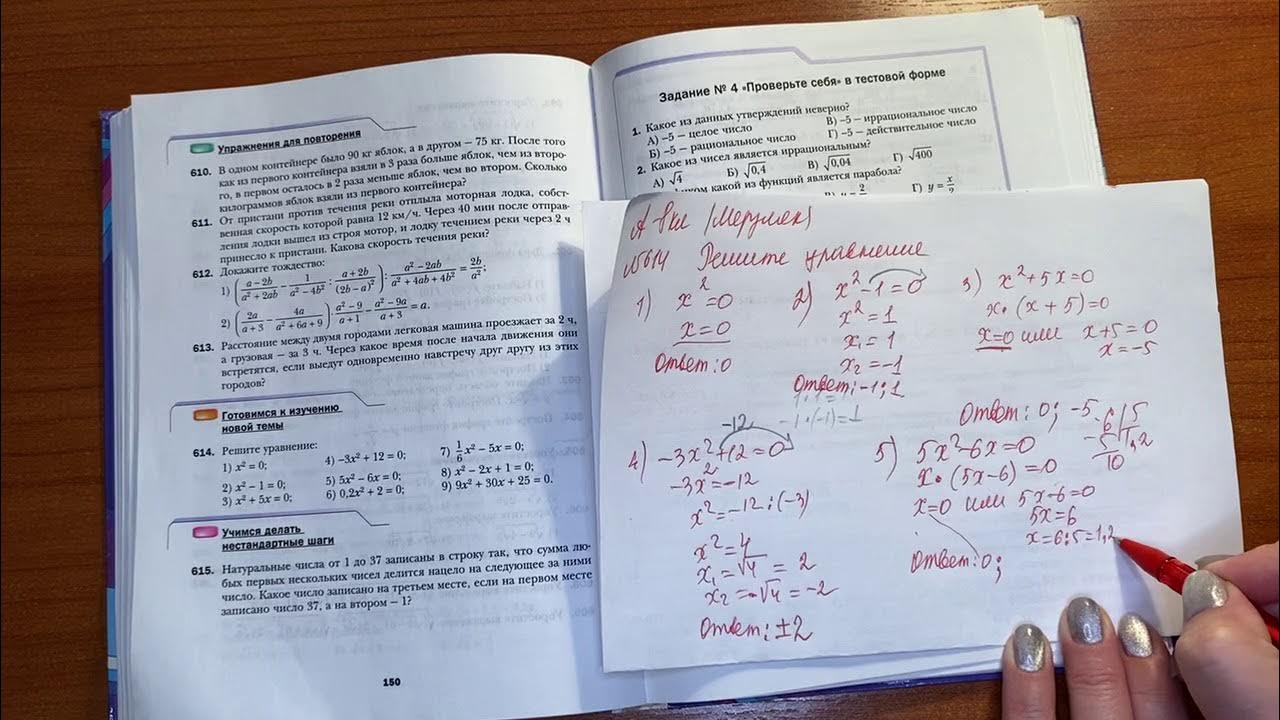 Упражнения для повторения
610. В одном контейнере было 90 кг яблок, а в другом – 75 кг. После того
как из первого контейнера взяли в 3 раза больше яблок, чем из второ-
го, в первом осталось в 2 раза меньше яблок, чем во втором. Сколько
килограммов яблок взяли из первого контейнера?
611. От пристани против течения реки отплыла моторная лодка, собст-
венная скорость которой равна 12 км/ч. Через 40 мин после отправ-
ления лодки вышел из строя мотор, и лодку течением реки через 2 ч
принесло к пристани. Какова скорость течения реки?
612. Докажите тождество:
1) ((a − 2b)/(a² + 2ab) − 1/(a² − 4b²) : (a + 2b)/(2b − a)²) : (a² − 2ab)/(a² + 4ab + 4b²) = 2b/a²;
2) (2a/(a + 3) − 4a/(a² + 6a + 9)) · (a² − 9)/(a + 1) − (a² − 9a)/(a + 3) = a.
613. Расстояние между двумя городами легковая машина проезжает за 2 ч,
а грузовая – за 3 ч. Через какое время после начала движения они
встретятся, если выедут одновременно навстречу друг другу из этих
городов?
Готовимся к изучению
новой темы
614. Решите уравнение:
1) x² = 0; 4) −3x² + 12 = 0; 7) 1/6 x² − 5x = 0;
2) x² − 1 = 0; 5) 5x² − 6x = 0; 8) x² − 2x + 1 = 0;
3) x² + 5x = 0; 6) 0,2x² + 2 = 0; 9) 9x² + 30x + 25 = 0.
Учимся делать
нестандартные шаги
615. Натуральные числа от 1 до 37 записаны в строку так, что сумма лю-
бых первых нескольких чисел делится нацело на следующее за ними
число. Какое число записано на третьем месте, если на первом месте
записано число 37, а на втором – 1?
150
Задание № 4 «Проверьте себя» в тестовой форме
1. Какое из данных утверждений неверно?
А) –5 – целое число В) –5 – иррациональное число
Б) –5 – рациональное число Г) –5 – действительное число
2. Какое из чисел является иррациональным?
А) √4 Б) √0,4 В) √0,04 Г) √400
какой из функций является парабола?
Г) y = x/2
А (Мерзляк)
№614 Решите уравнение
1) x² = 0
x = 0
Ответ: 0
2) x² − 1 = 0
x² = 1
x₁ = 1
x₂ = −1
Ответ: −1; 1
−1·(−1)=1
3) x² + 5x = 0
x·(x + 5) = 0
x = 0 или x + 5 = 0
x = −5
Ответ: 0; −5
4) −3x² + 12 = 0
−12
−3x² = −12
x² = −12 : (−3)
x² = 4
x₁ = √4 = 2
x₂ = −√4 = −2
Ответ: ±2
5) 5x² − 6x = 0
x·(5x − 6) = 0
x = 0 или 5x − 6 = 0
5x = 6
x = 6:5 = 1,2
Ответ: 0;
6 5
5 1,2
10